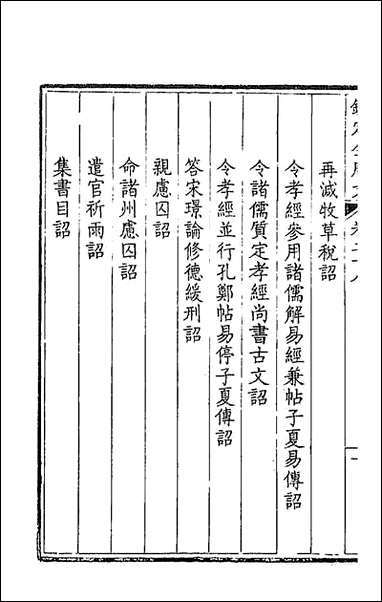 再減牧草稅詔
令孝經參用諸儒解易經兼帖子夏易傳詔
令諸儒質定孝經尚書古文詔
令孝經並行孔鄭帖易停子夏傳詔
答宋璟論修德緩刑詔
親慮囚詔
命諸州慮囚詔
遣官祈雨詔
集書目詔